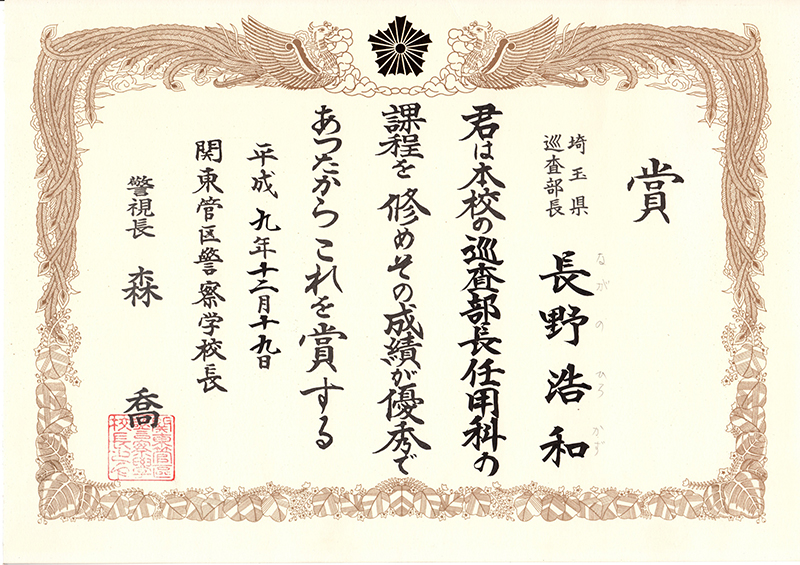 賞
埼玉県
巡査部長
長野浩和
ながの ひろ かず
君は本校の巡査部長任用科の
課程を修めその成績が優秀で
あつたからこれを賞する
平成九年十二月十九日
関東管区警察学校長
警視長 森 喬